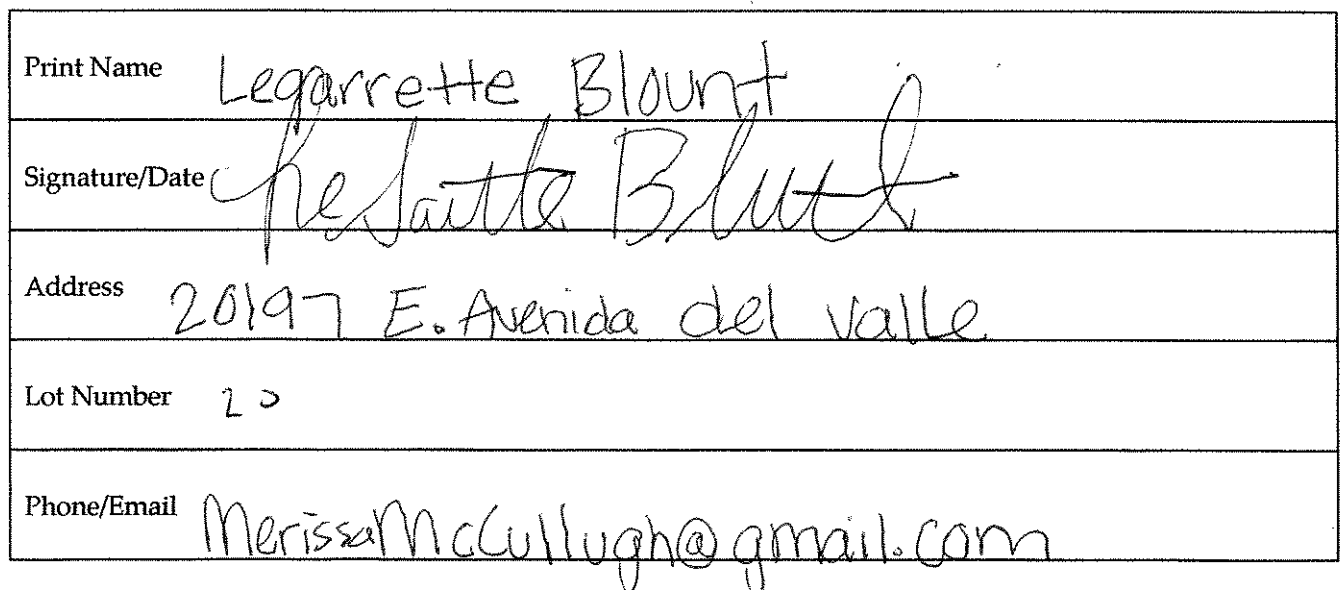 Print Name Legarrette Blount
Signature/Date
Address 20197 E. Avenida del Valle
Lot Number 20
Phone/Email MerissaMcCullugh@gmail.com